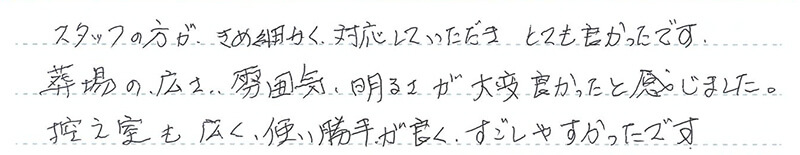 スタッフの方が、きめ細かく、対応していただき とても良かったです。
葬場の、広さ、雰囲気、明るさが大変良かったと感じました。
控え室も広く、使い勝手が良く、すごしやすかったです